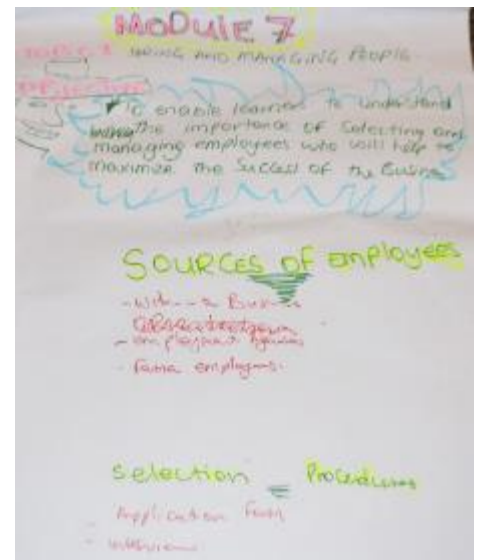 MODULE 7
HIRING AND MANAGING PEOPLE
To enable learners to understand
the importance of selecting and
managing employees who will help to
maximize the success of the Business
SOURCES OF EMPLOYEES
- a Business
- employment
- employees.
Selection Procedures
- Application Form
- interviews